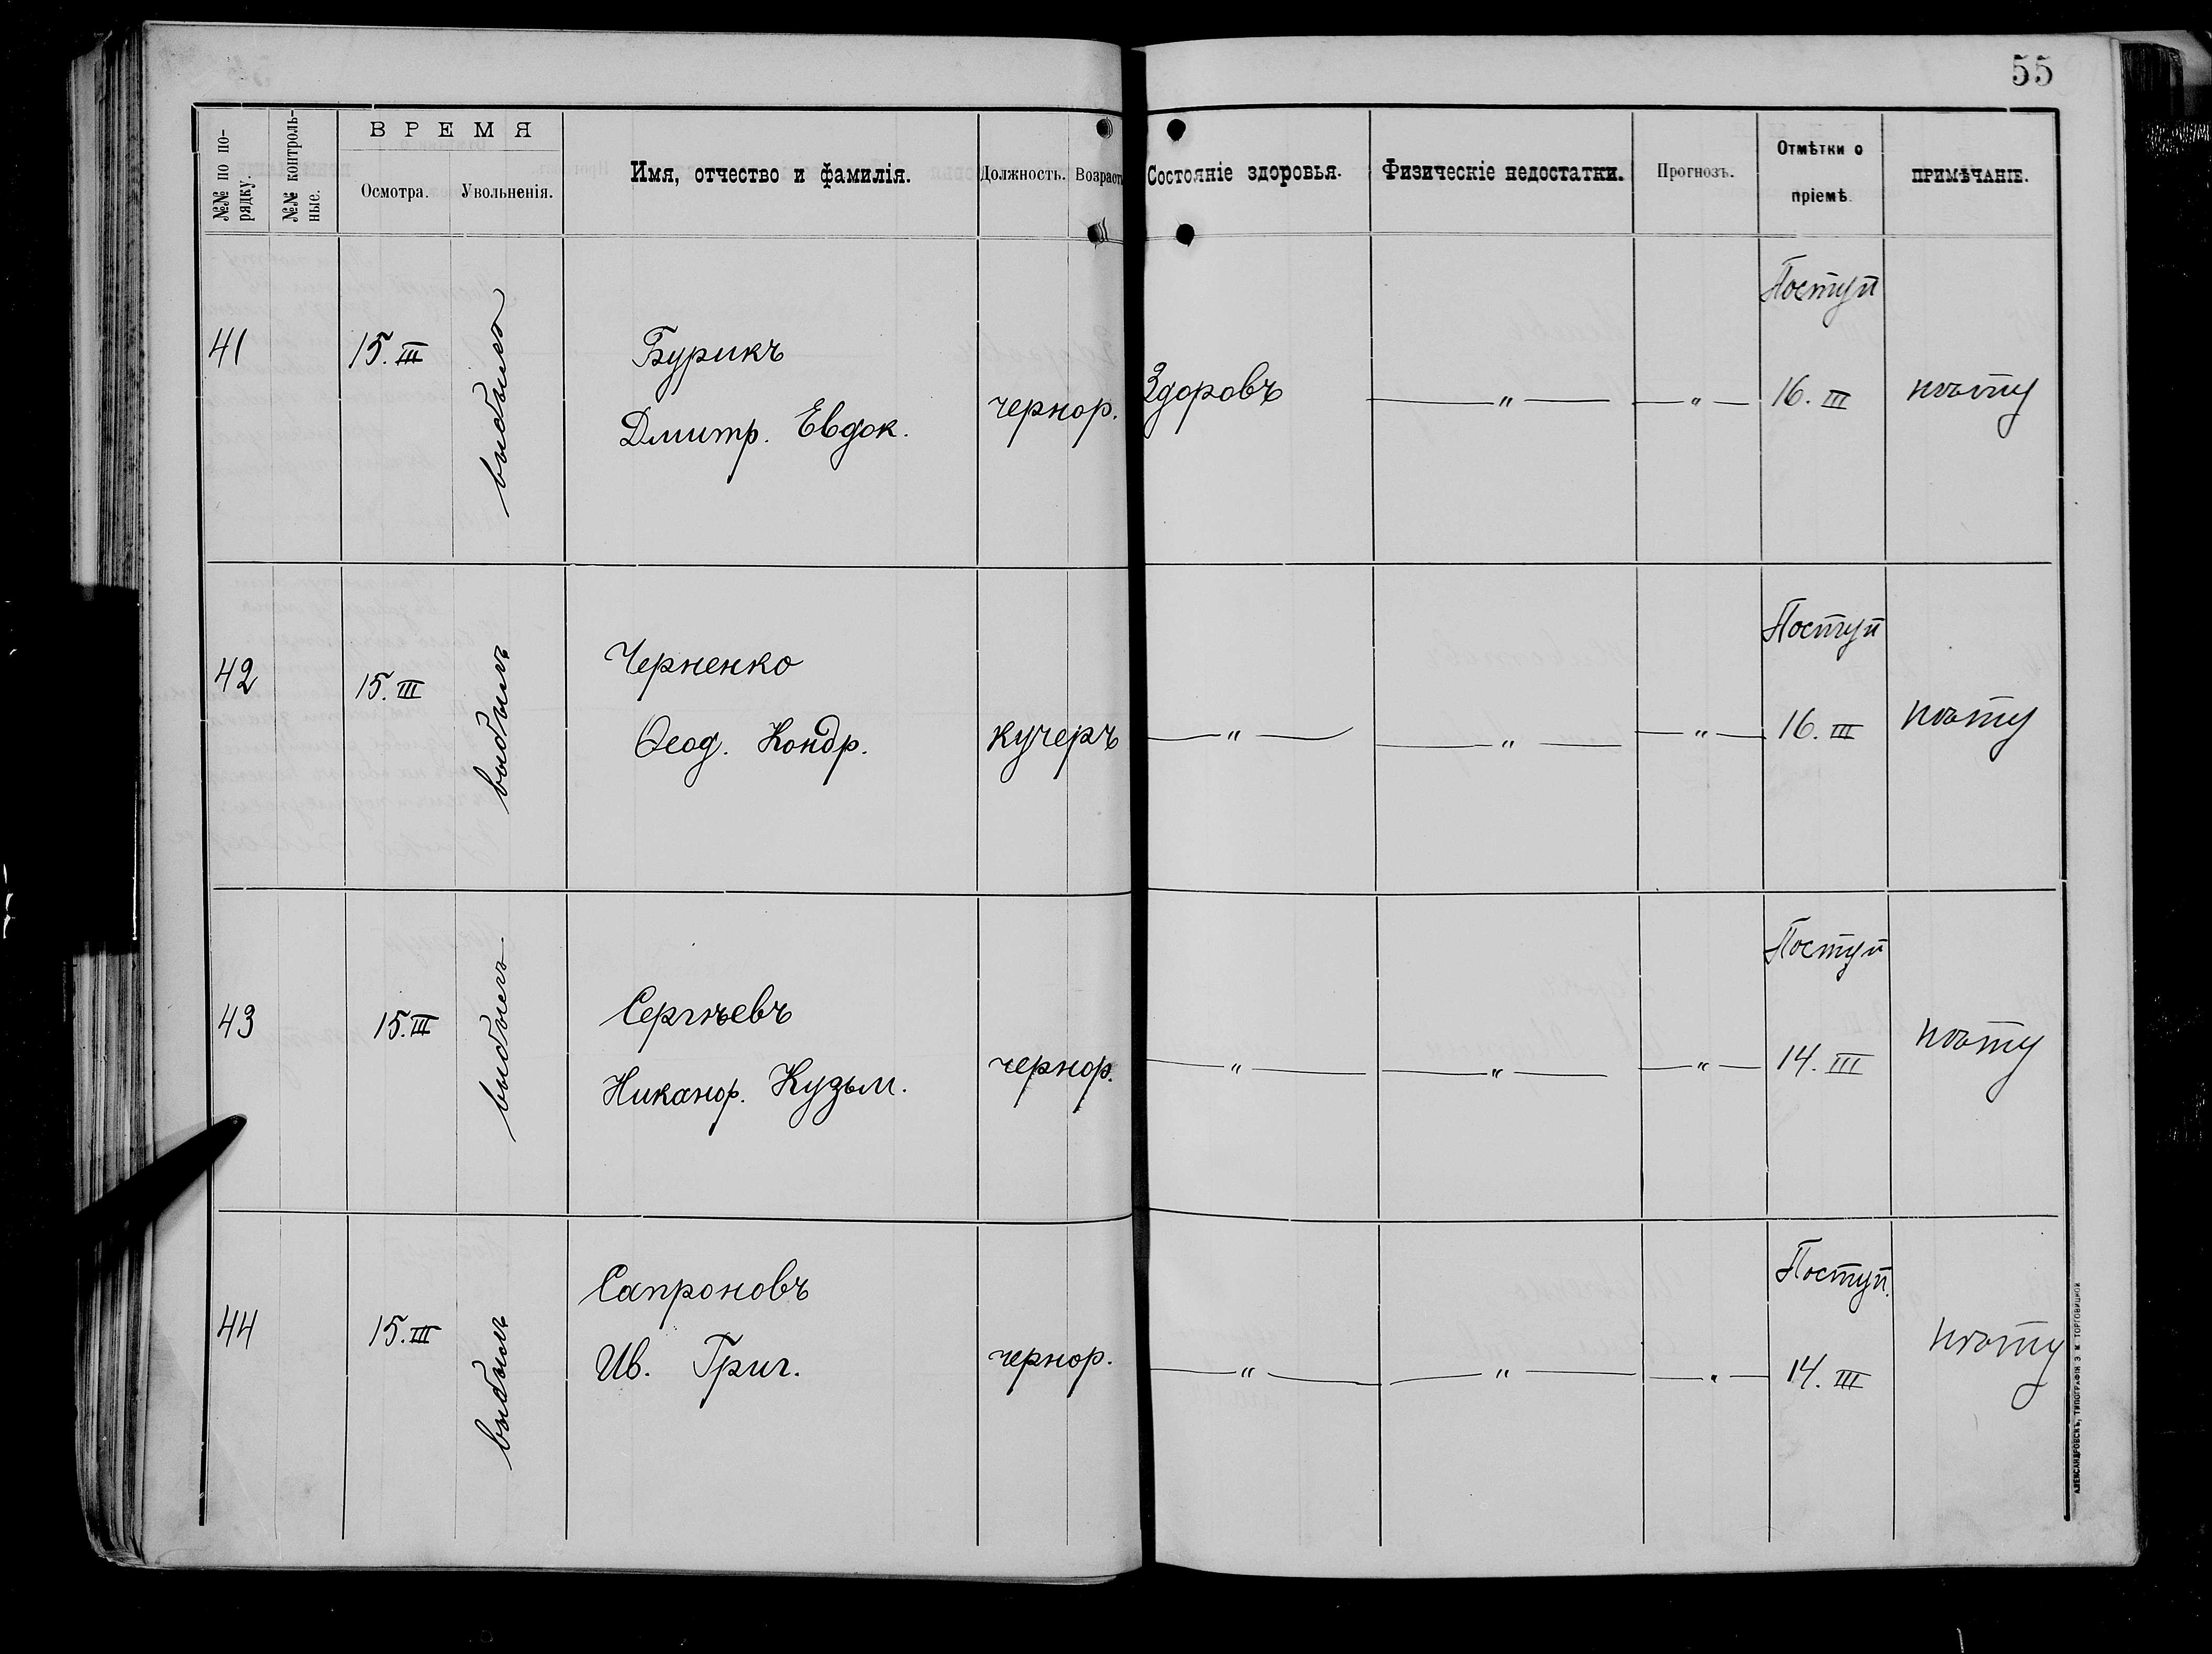 55
№№ по по-
рядку.
№№ контроль-
ные.
ВРЕМЯ
Осмотра.
Увольненія.
Имя, отчество и фамилія.
Должность.
Возраст
Состояніе здоровья.
Физическіе недостатки.
Прогнозъ.
Отмѣтки о
пріемѣ.
ПРИМѢЧАНІЕ.
41
15.III
Бурикъ
Дмитр. Евдок.
чернор.
Здоровъ
— " —
— " —
Поступ
16. III
42
15.III
выбылъ
Черненко
Ѳеод. Кондр.
кучеръ
— " —
— " —
— " —
Поступ
16. III
43
15.III
выбылъ
Сергѣевъ
Никанор. Кузьм.
чернор.
— " —
— " —
— " —
Поступ
14. III
44
15.III
выбылъ
Сапроновъ
Ив. Григ.
чернор.
— " —
— " —
— " —
Поступ.
14. III
АЛЕКСАНДРОВСКЪ, ТИПОГРАФІЯ Э. М. ТОРГОВИЦКОЙ